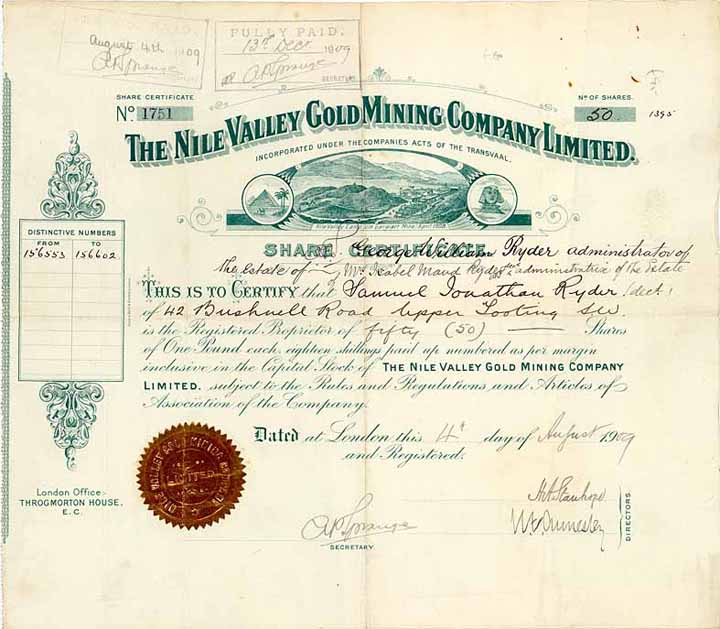 PAID.
August 4th 1909
A P Sprange
FULLY PAID.
13th Dec 1909
A P Sprange
SECRETARY
SHARE CERTIFICATE
No. 1751
No OF SHARES.
50
1395
THE NILE VALLEY GOLD MINING COMPANY LIMITED.
INCORPORATED UNDER THE COMPANIES ACTS OF THE TRANSVAAL.
SHARE CERTIFICATE
George William Ryder administrator of
the Estate of
Mrs Isabel Maud Ryder administratrix of the Estate
THIS IS TO CERTIFY that Samuel Jonathan Ryder (decd)
of 42 Bushnell Road Upper Tooting SW.
is the Registered Proprietor of fifty (50) Shares
of One Pound each, eighteen shillings paid up numbered as per margin
inclusive in the Capital Stock of THE NILE VALLEY GOLD MINING COMPANY
LIMITED, subject to the Rules and Regulations and Articles of
Association of the Company.
Dated at London this 4th day of August 1909
and Registered.
DISTINCTIVE NUMBERS
FROM TO
156553 156602
London Office:-
THROGMORTON HOUSE,
E.C.
NILE VALLEY GOLD MINING COMPANY
LIMITED
A P Sprange
SECRETARY
H A Stanhope
DIRECTORS